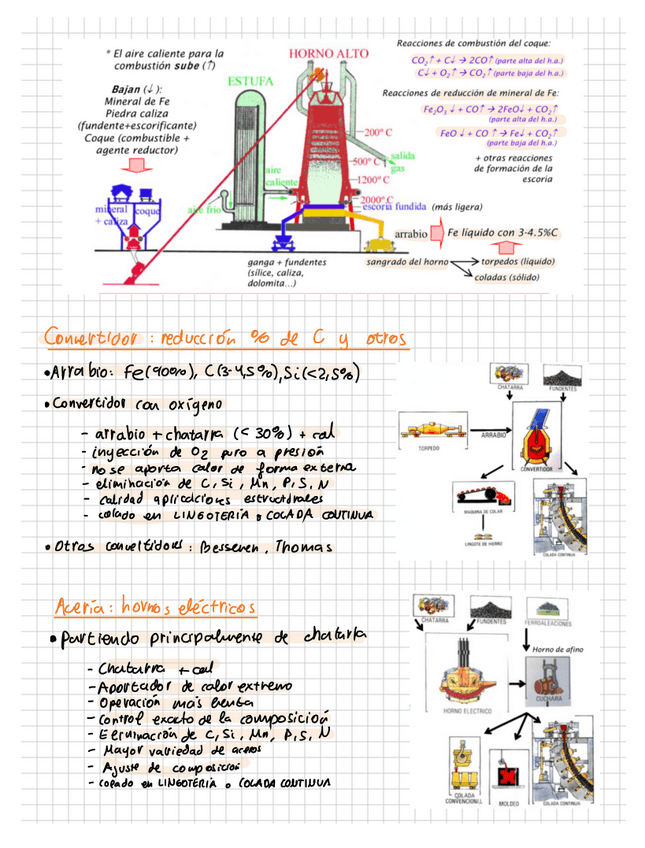 * El aire caliente para la
combustión sube (↑)
Bajan (↓):
Mineral de Fe
Piedra caliza
(fundente+escorificante)
Coque (combustible +
agente reductor)
HORNO ALTO
ESTUFA
Reacciones de combustión del coque:
CO₂↑ + C↓ → 2CO↑ (parte alta del h.a.)
C↓ + O₂↑ → CO₂↑ (parte baja del h.a.)
Reacciones de reducción de mineral de Fe:
Fe₂O₃↓ + CO↑ → 2FeO↓ + CO₂↑
(parte alta del h.a.)
FeO↓ + CO↑ → Fe↓ + CO₂↑
(parte baja del h.a.)
+ otras reacciones
de formación de la
escoria
200º C
500º C
salida
gas
1200º C
2000º C
aire
caliente
aire frío
mineral
+ caliza
coque
escoria fundida (más ligera)
arrabio
Fe líquido con 3-4.5%C
ganga + fundentes
(sílice, caliza,
dolomita...)
sangrado del horno
torpedos (líquido)
coladas (sólido)
Convertidor: reducción % de C y otros
• Arrabio: Fe(90%), C(3-4,5%), Si(<2,5%)
• Convertidor con oxígeno
- arrabio + chatarra (< 30%) + cal
- inyección de O2 puro a presión
- no se aporta calor de forma externa
- eliminación de C, Si, Mn, P, S, N
- calidad aplicaciones estructurales
- colado en LINGOTERIA o COLADA CONTINUA
• Otros convertidores: Bessemen, Thomas
CHATARRA
FUNDENTES
TORPEDO
ARRABIO
CONVERTIDOR
MAQUINA DE COLAR
LINGOTE DE HIERRO
COLADA CONTINUA
Acería: hornos eléctricos
• Partiendo principalmente de chatarra
- Chatarra + cal
- Aportador de calor extremo
- Operación más lenta
- Control exacto de la composición
- Eliminación de C, Si, Mn, P, S, N
- Mayor variedad de aceros
- Ajuste de composición
- colado en LINGOTERIA o COLADA CONTINUA
CHATARRA
FUNDENTES
FERROALEACIONES
Horno de afino
HORNO ELECTRICO
CUCHARA
COLADA
CONVENCIONAL
MOLDEO
COLADA CONTINUA